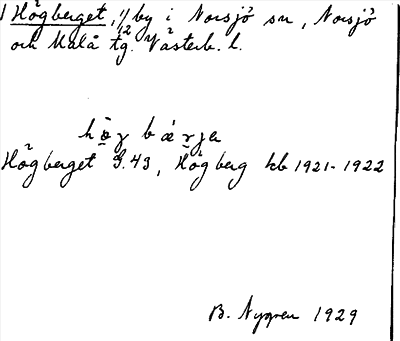 Högberget, 1/2 by i Norsjö sn, Norsjö
och Malå tg. Västerb. l.
Högberget J. 43, Högberg kb 1921-1922
B. Nygren 1929